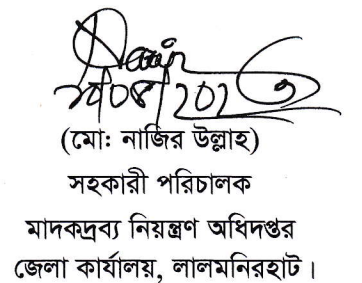 (মো: নাজির উল্লাহ)
সহকারী পরিচালক
মাদকদ্রব্য নিয়ন্ত্রণ অধিদপ্তর
জেলা কার্যালয়, লালমনিরহাট।